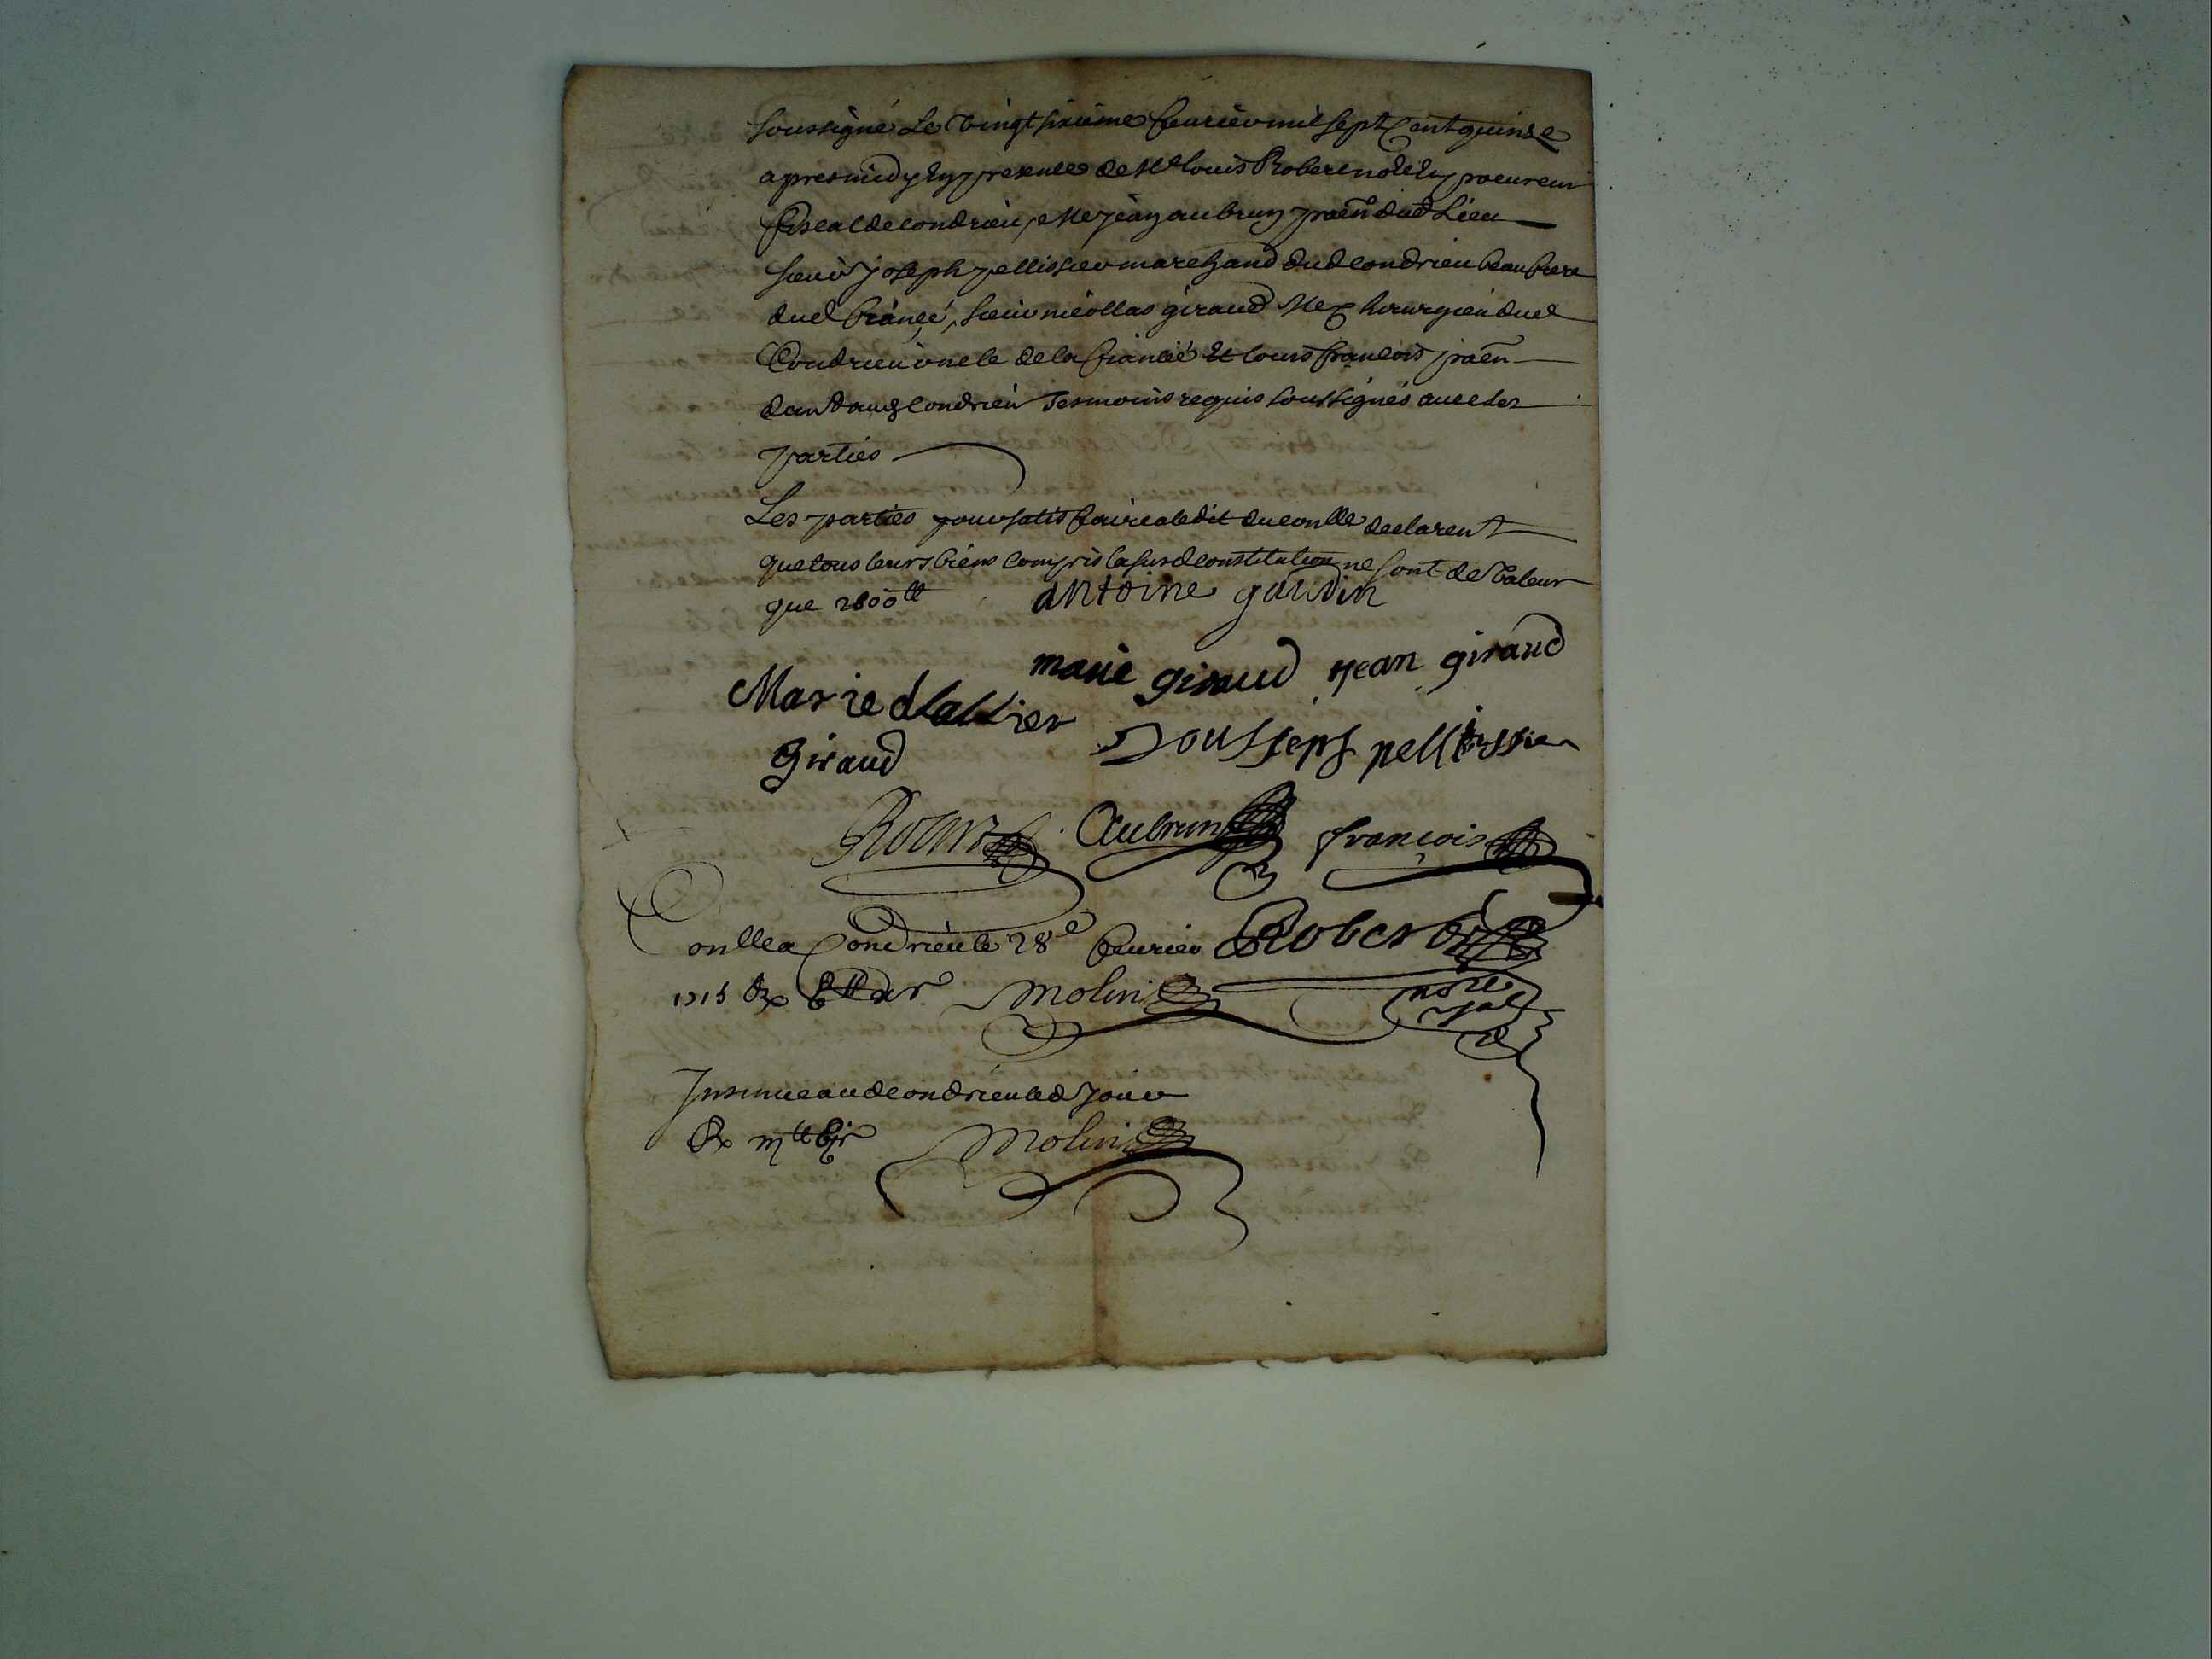 soussigné Le vingt sixieme feurier mil sept Cent quinze
apres midy En presence de Me louis Robert no.re Et procureur
fiscal de condrieu, Me jean aubrun praēn dud Lieu
sieur joseph pellissier marchand dud condrieu beaufrere
dud fiancé, sieur nicollas giraud Me chirurgien dud
Condrieu oncle de la fiancée Et louis françois praēn
dud condrieu Tesmoins requis soussignés auec les
parties
Les parties pour satisfaire a ledit du conlle declarent
que tous leurs biens compris la susd constitution ne sont de valeur
que 2800 ll
antoine gaudin
marie giraud jean giraud
Marie
giraud
Jousseph pellissier
Robert Aubrun françois
Conlle a Condrieu le 28e feurier
1715 Rx
Robert
molin
no.re
royal
Insinue aud condrieu led jour
Rx
molin